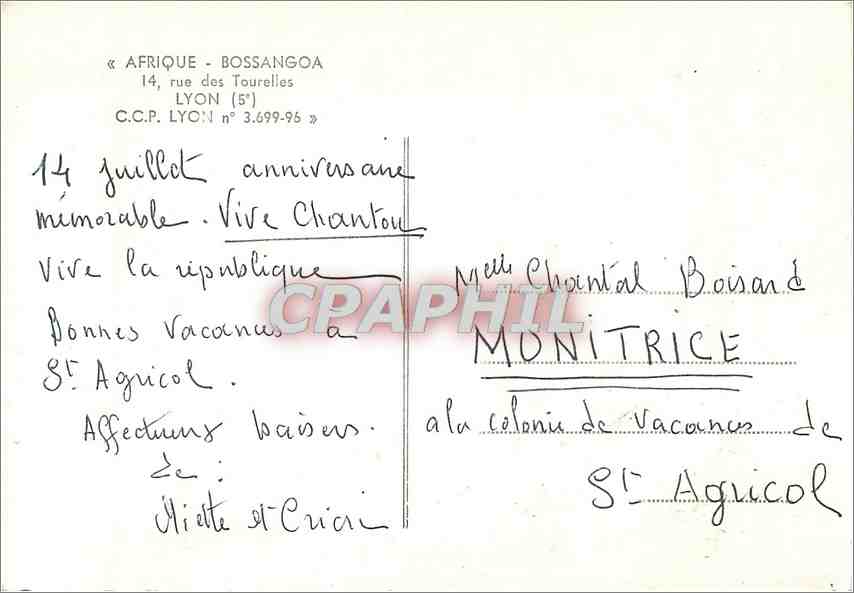 « AFRIQUE - BOSSANGOA
14, rue des Tourelles
LYON (5e)
C.C.P. LYON n° 3.699-96 »
14 juillet anniversaire
mémorable. Vive Chantou
Vive la république
Bonnes Vacances a
St Agricol.
Affectueux baisers.
de :
Miette et Cricri
Melle Chantal Boisard
MONITRICE
a la colonie de Vacances de
St Agricol
CPAPHIL